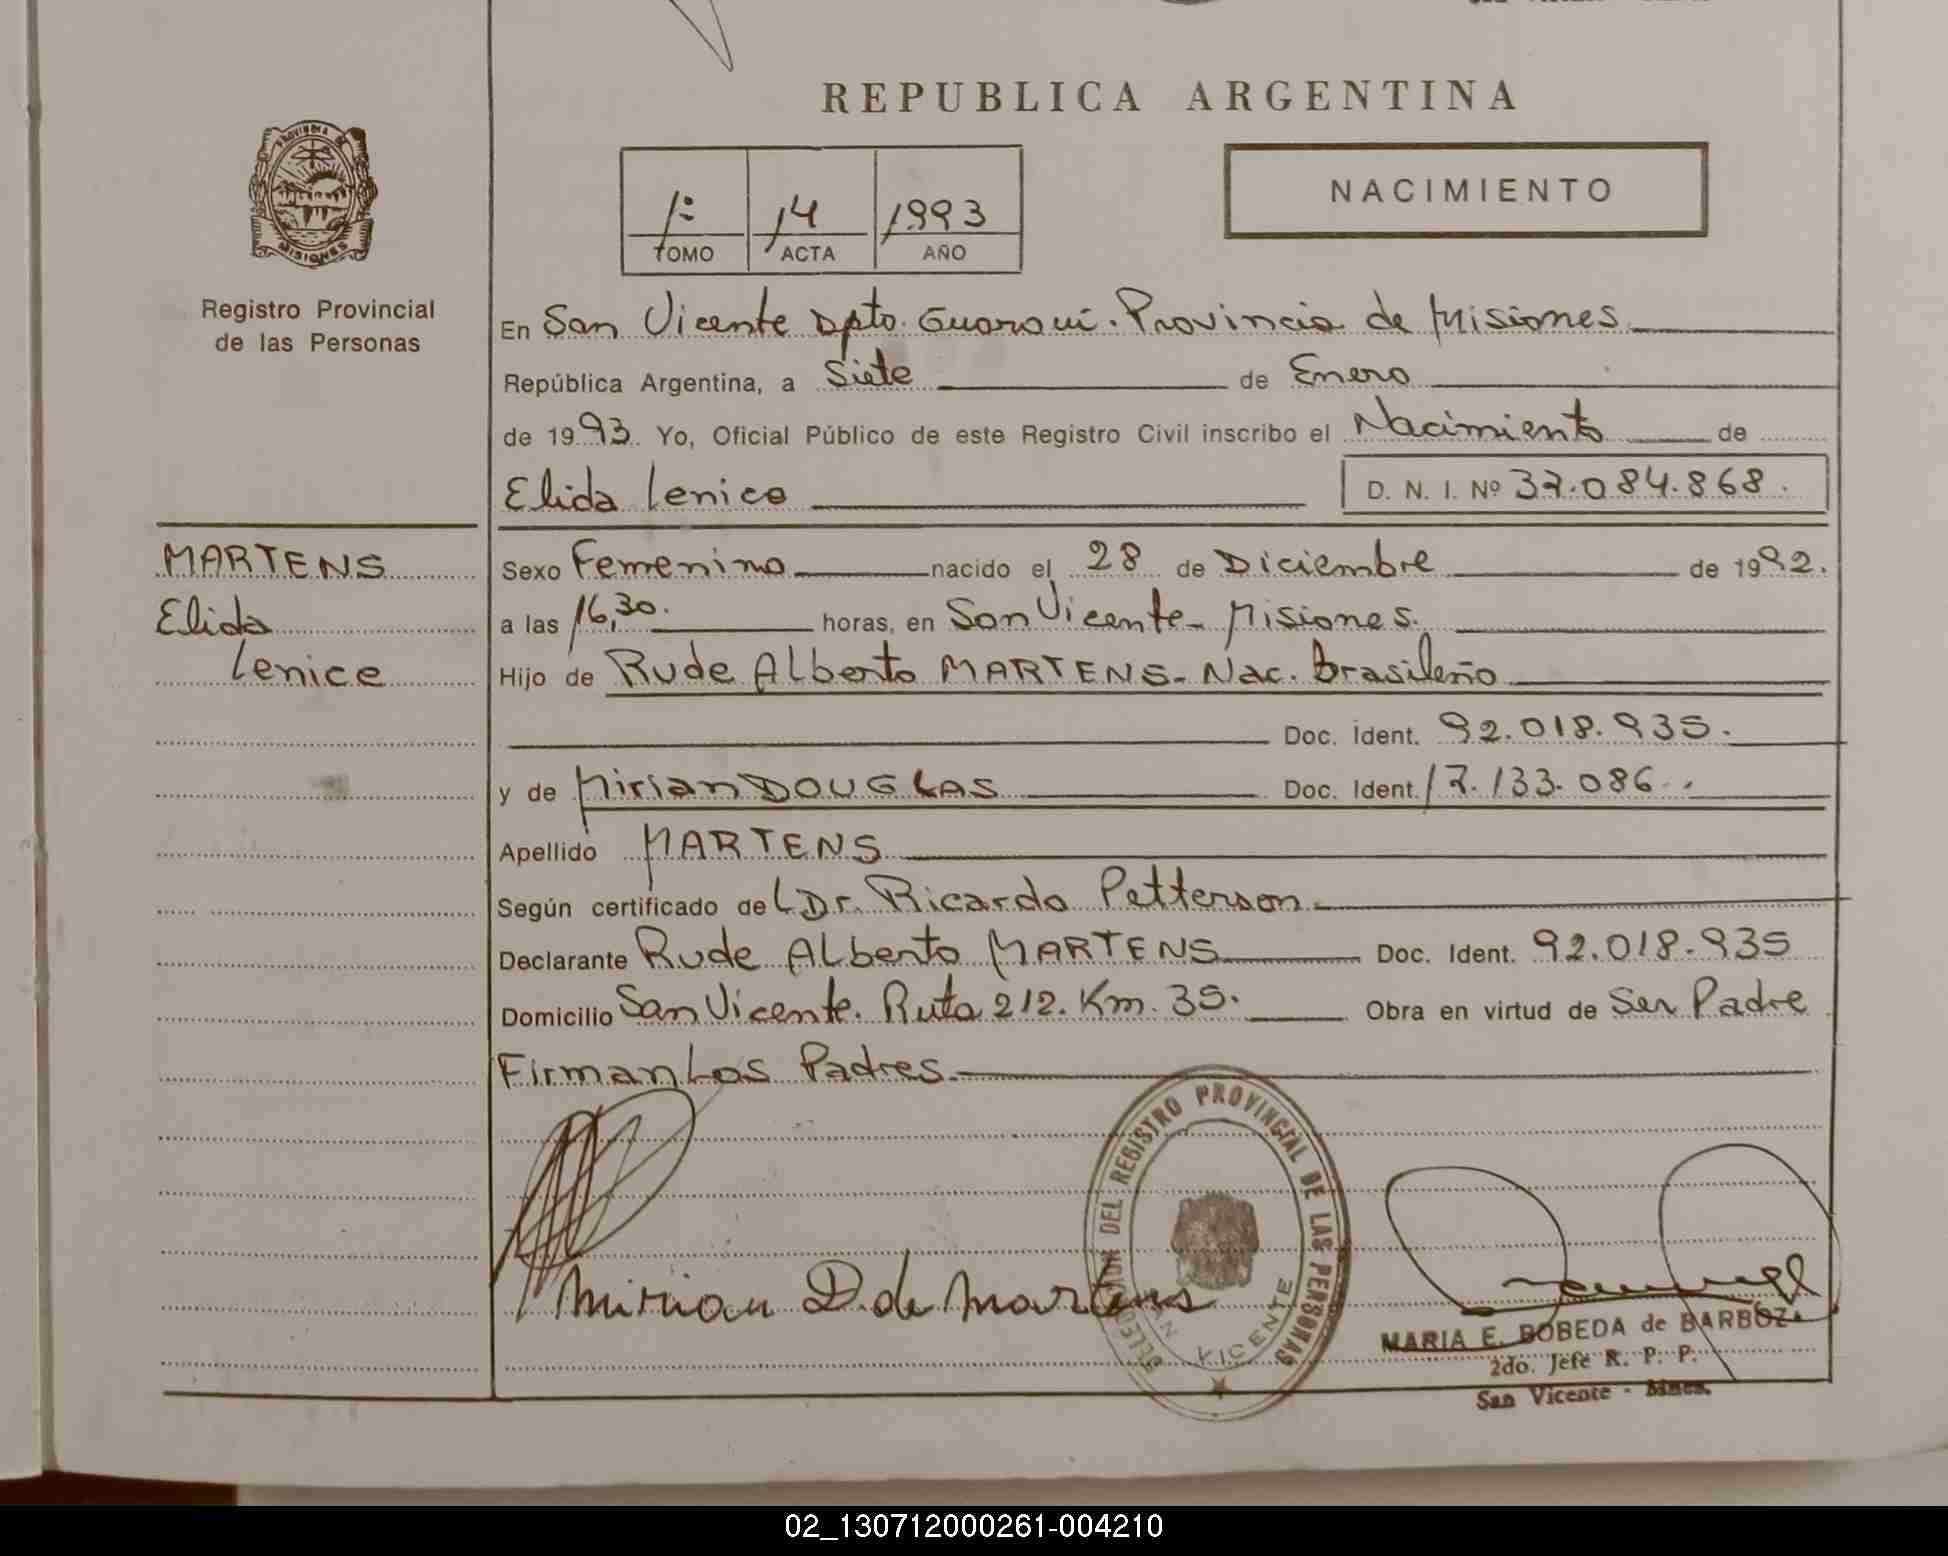 REPUBLICA ARGENTINA
PROVINCIA DE MISIONES
Registro Provincial
de las Personas
1º 14 1993
TOMO ACTA AÑO
NACIMIENTO
En San Vicente Dpto. Guaraní. Provincia de Misiones
República Argentina, a Siete de Enero
de 1993. Yo, Oficial Público de este Registro Civil inscribo el Nacimiento de
Elida Lenice D. N. I. Nº 37.084.868.
MARTENS
Elida
Lenice
Sexo Femenino nacido el 28 de Diciembre de 1992.
a las 16,30. horas, en San Vicente - Misiones.
Hijo de Rude Alberto MARTENS - Nac. brasileño
Doc. Ident. 92.018.935.
y de Mirian DOUGLAS Doc. Ident. 17.133.086.
Apellido MARTENS
Según certificado del Dr. Ricardo Petterson.
Declarante Rude Alberto MARTENS Doc. Ident. 92.018.935
Domicilio San Vicente. Ruta 212. Km. 35. Obra en virtud de Ser Padre
Firman Los Padres.
Mirian D. de Martens
DELEGACION DEL REGISTRO PROVINCIAL DE LAS PERSONAS
SAN VICENTE
MARIA E. BOBEDA de BARBOZA
2do. Jefe R. P. P.
San Vicente - Mnes.
02_130712000261-004210